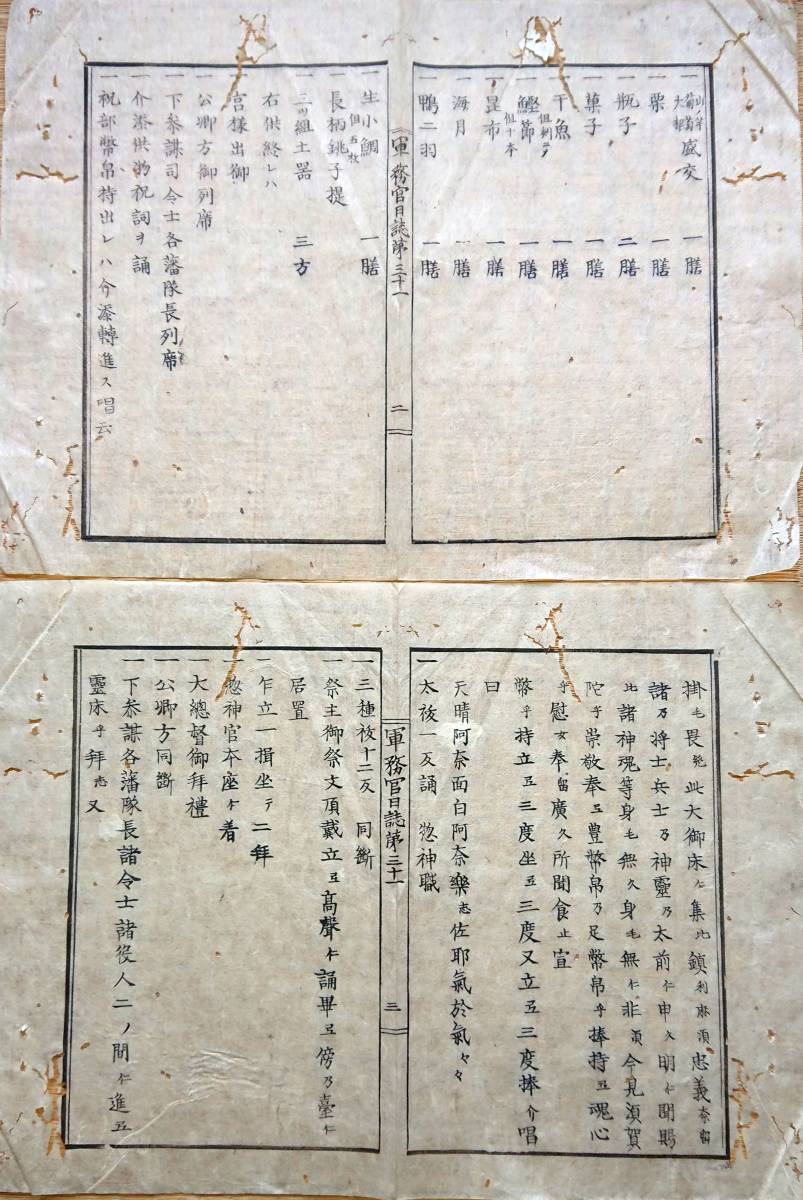 一 山芋 葡萄 大根 盛交 一膳
一 栗 一膳
一 瓶子 二膳
一 菓子 一膳
一 干魚 但剣先 一膳
一 鰹節 但十本 一膳
一 昆布 一膳
一 海月 一膳
一 鴨二羽 一膳
軍務官日誌第三十一 二
一 生小鯛 但五枚 一膳
一 長柄銚子提
一 三ツ組土器 三方
右供終レハ
一 宮様出御
一 公卿方御列席
一 下参謀司令士各藩隊長列席
一 介添供物祝詞ヲ誦
一 祝部幣帛持出レハ介添轉進ス唱云
掛毛畏兠此大御床仁集比鎮利麻須忠義奈留
諸乃将士兵士乃神靈乃太前仁申久明仁聞賜
比諸神魂等身毛無久身毛無仁非須今見須賀
陀乎崇敬奉五豊幣帛乃足幣帛乎捧持五魂心
乎慰女奉留廣久所聞食止宣
幣乎持立五三度坐五三度又立五三度捧介唱
曰
天晴阿奈面白阿奈樂志佐耶氣於氣々々
一 太祓一反誦 惣神職
軍務官日誌第三十一 三
一 三種祓十二反 同断
一 祭主御祭文頂戴立五高聲仁誦畢五傍乃臺仁
居置
一 乍立一揖坐テ二拜
一 惣神官本座仁着
一 大總督御拜禮
一 公卿方同断
一 下参謀各藩隊長諸令士諸役人二ノ間仁進五
靈床乎拜志又